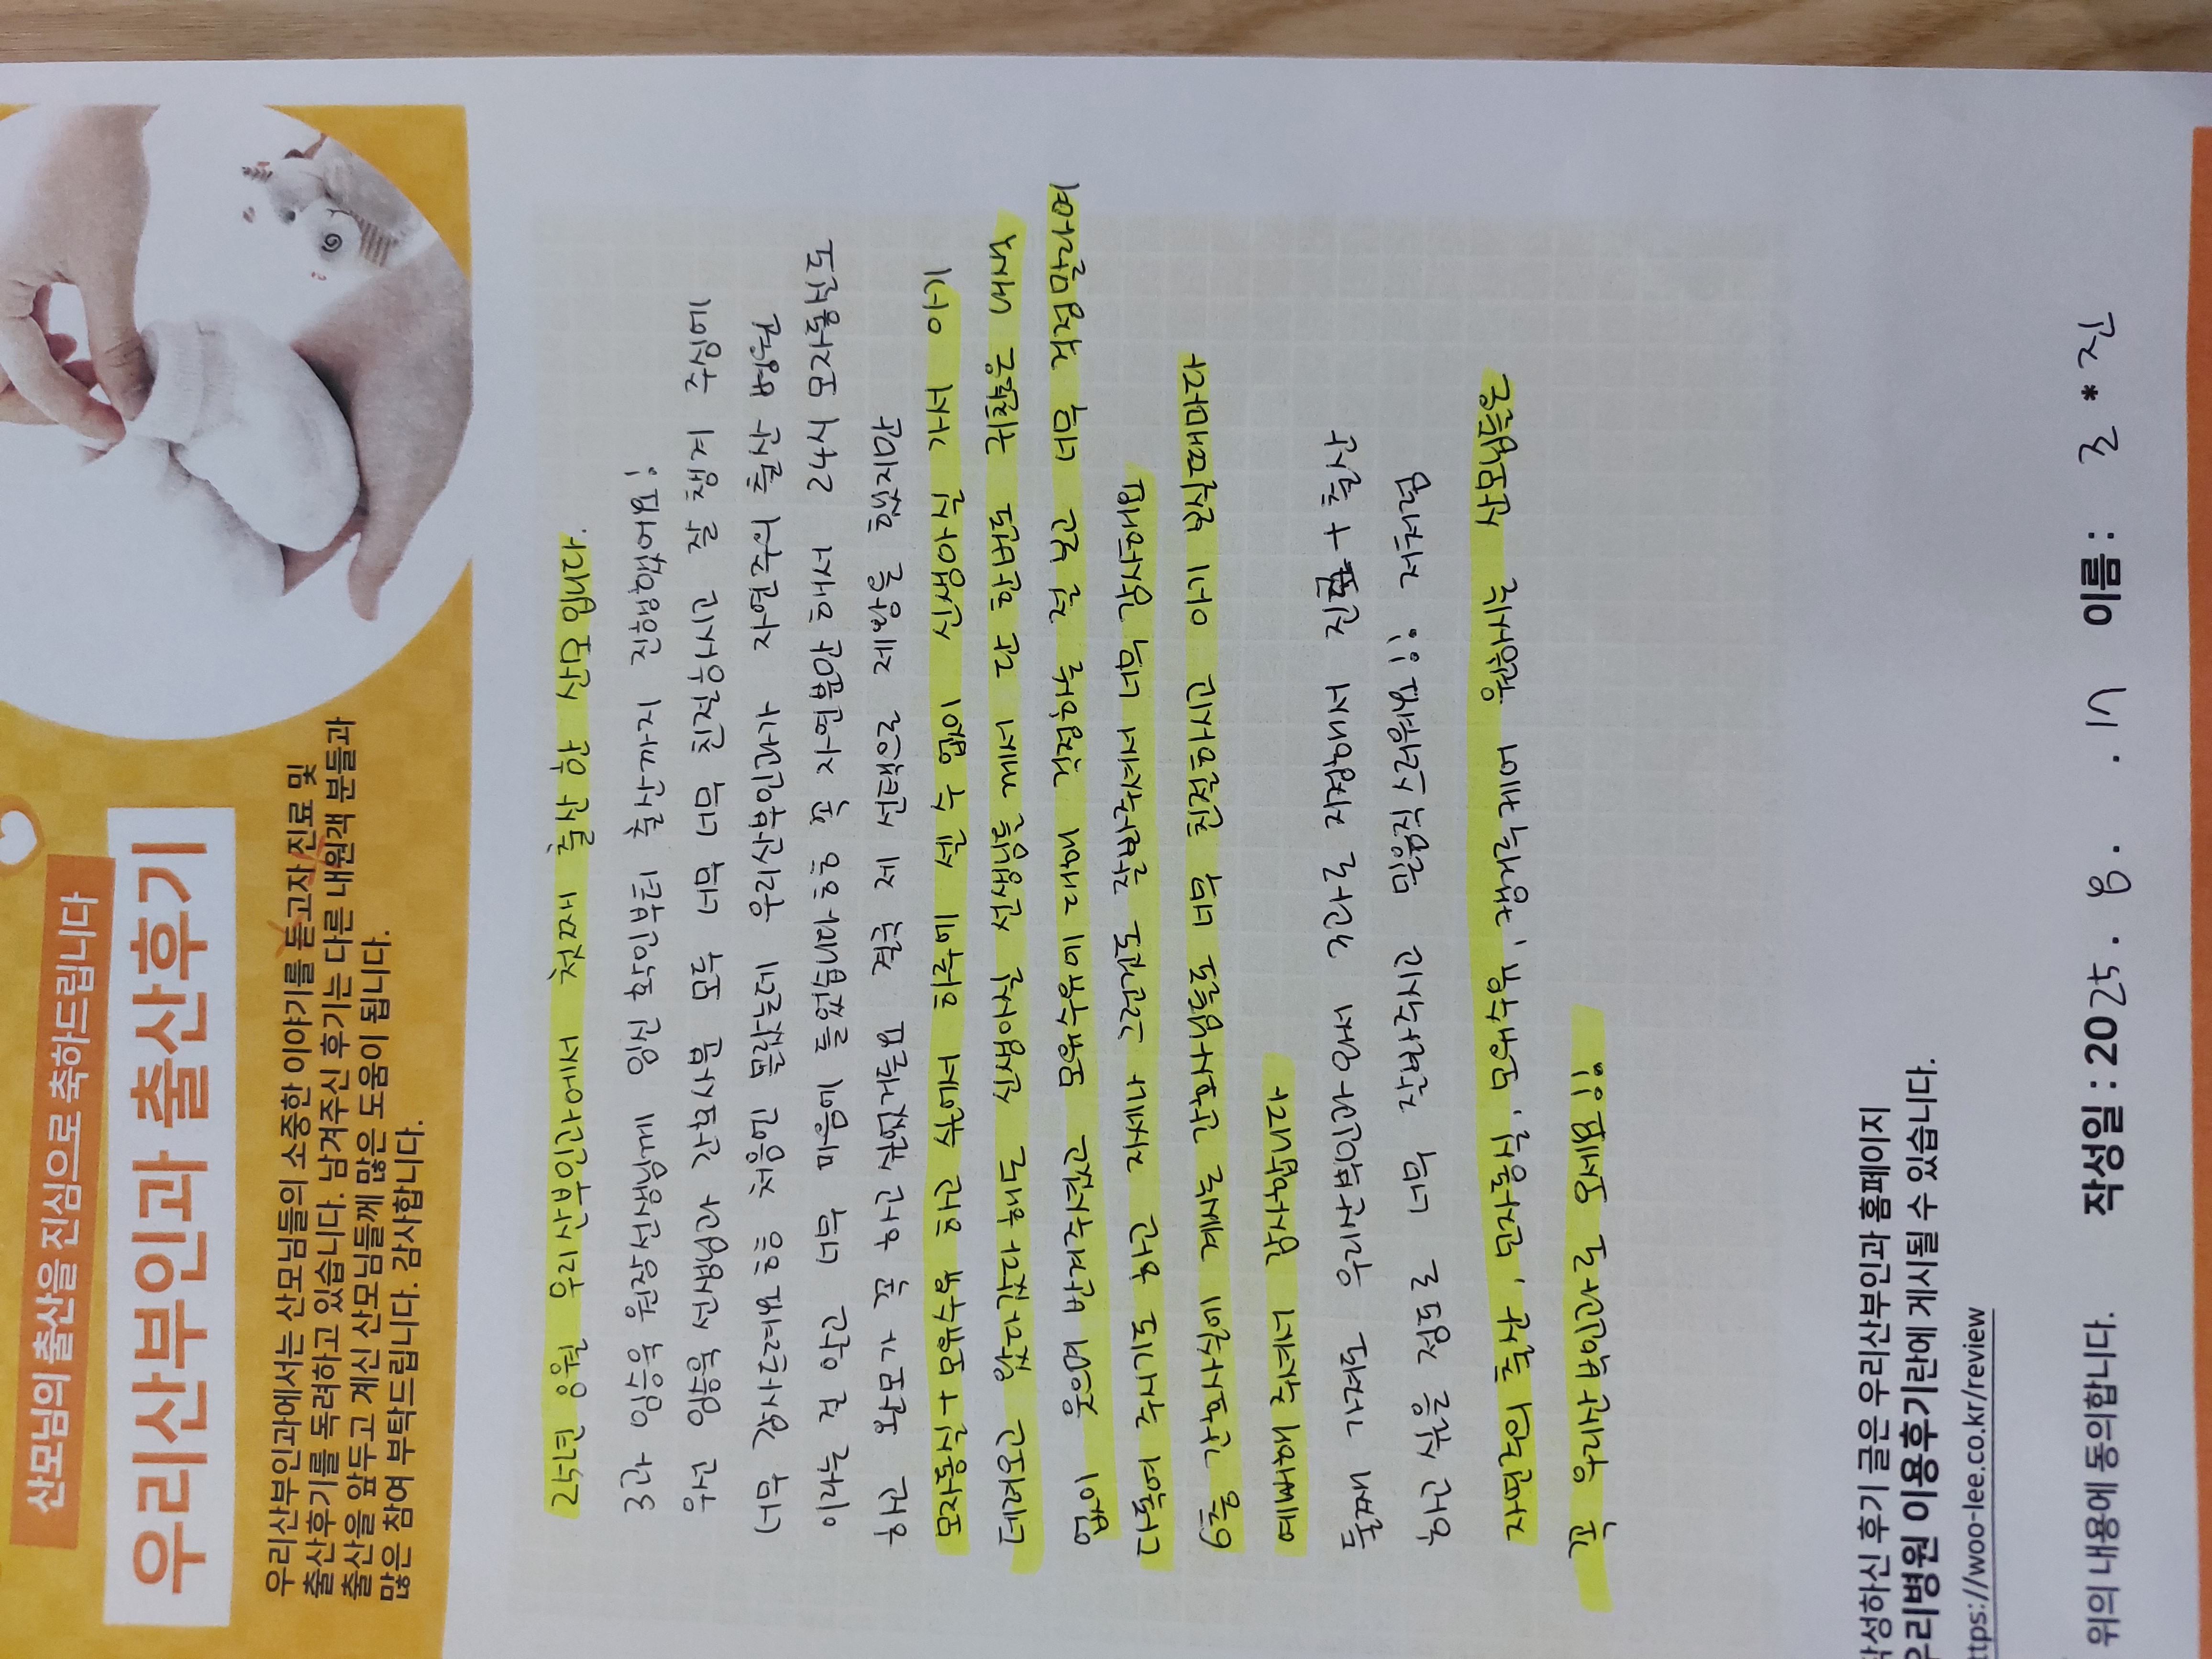 산모님의 출산을 진심으로 축하드립니다
우리산부인과 출산후기
우리산부인과에서는 산모님들의 소중한 이야기를 듣고자 진료 및
출산후기를 독려하고 있습니다. 남겨주신 후기는 다른 내원객 분들과
출산을 앞두고 계신 산모님들께 많은 도움이 됩니다.
많은 참여 부탁드립니다. 감사합니다.
25년 8월 우리산부인과에서 첫째 출산 한 산모 입니다.
3과 임승욱 원장선생님께 임신 확인부터 출산까지 진행했었어요!
우선 임승욱 선생님과 간호사분 모두 너무 너무 친절하시고 잘 챙겨 주심에
너무 감사드려요ㅎㅎ 처음엔 몰랐는데 우리산부인과가 자연주의 출산 병원
이라는 걸 알고 너무 마음에 들었답니다ㅎㅎ 꼭 자연분만 해서 24시 모자동실도
하고 완모가 꼭 하고싶었거든요 결국 제 선택으로 제왕을 했지만
모자동실+모유수유 하고 수에서 하루에 셀 수 없이 신생아실 가서 아기
데려오고 왔다갔다하는 신생아실 선생님들께서 단 한번도 귀찮은 내색
없이 웃으며 반겨주셨고 모유수유에 대해 걱정하는 걸 너무 잘 알려주며
다독여 주시기도 하고 가서 그만큼 잘해주셔서 너무 안심됐어요
6층 간호사실에 계시는 간호사님들도 너무 친절하시고 아기 케어며
예뻐해 주셔서 감사합니다
둘째 가져도 우리산부인과와서 너무 좋다라고 지정해서 진료+출산
하고 싶을 정도로 너무 잘하시고 믿음직스러워요!! 저처럼
자연주의 출산, 모자동실, 모유수유, 생각하는 예비 산모님들은
꼭 우리산부인과로 오세요!!
작성하신 후기 글은 우리산부인과 홈페이지
우리병원 이용후기란에 게시될 수 있습니다.
https://woo-lee.co.kr/review
위의 내용에 동의합니다. 작성일 : 2025. 8. . 17 이름 : 로 * 진